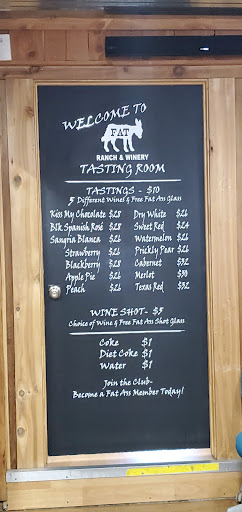 WELCOME TO
FAT
RANCH & WINERY
TASTING ROOM
TASTINGS - $10
5 Different Wines & Free Fat Ass Glass
Kiss My Chocolate $28 Dry White $26
Blk Spanish Rosé $28 Sweet Red $24
Sangria Blanca $26 Watermelon $26
Strawberry $26 Prickly Pear $26
Blackberry $28 Cabernet $32
Apple Pie $26 Merlot $30
Peach $26 Texas Red $32
WINE SHOT- $5
Choice of Wine & Free Fat Ass Shot Glass
Coke $1
Diet Coke $1
Water $1
Join the Club-
Become a Fat Ass Member Today!